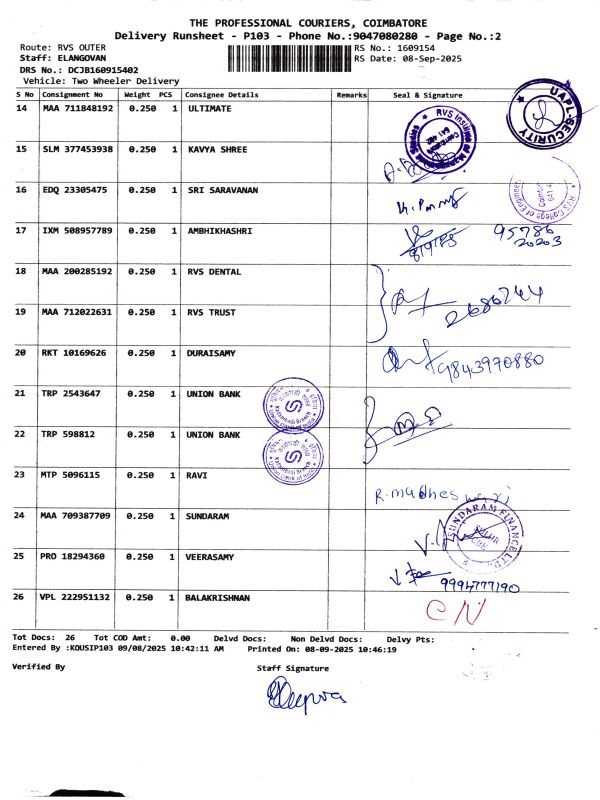 THE PROFESSIONAL COURIERS, COIMBATORE
Delivery Runsheet - P103 - Phone No.:9047080280 - Page No.:2
Route: RVS OUTER RS No.: 1609154
Staff: ELANGOVAN RS Date: 08-Sep-2025
DRS No.: DCJB160915402
Vehicle: Two Wheeler Delivery
S No Consignment No Weight PCS Consignee Details Remarks Seal & Signature
UAPL-SECURITY
14 MAA 711848192 0.250 1 ULTIMATE
15 SLM 377453938 0.250 1 KAVYA SHREE
16 EDQ 23305475 0.250 1 SRI SARAVANAN
RVS College of Engineer
17 IXM 508957789 0.250 1 AMBHIKHASHRI
95786
20203
18 MAA 200285192 0.250 1 RVS DENTAL
19 MAA 712022631 0.250 1 RVS TRUST
2686744
20 RKT 10169626 0.250 1 DURAISAMY
9843970880
21 TRP 2543647 0.250 1 UNION BANK
22 TRP 598812 0.250 1 UNION BANK
23 MTP 5096115 0.250 1 RAVI
24 MAA 709387709 0.250 1 SUNDARAM
SUNDARAM FINANCE LTD
25 PRO 18294360 0.250 1 VEERASAMY
9994777190
26 VPL 222951132 0.250 1 BALAKRISHNAN
CN
Tot Docs: 26 Tot COD Amt: 0.00 Delvd Docs: Non Delvd Docs: Delvy Pts:
Entered By :KOUSIP103 09/08/2025 10:42:11 AM Printed On: 08-09-2025 10:46:19
Verified By Staff Signature